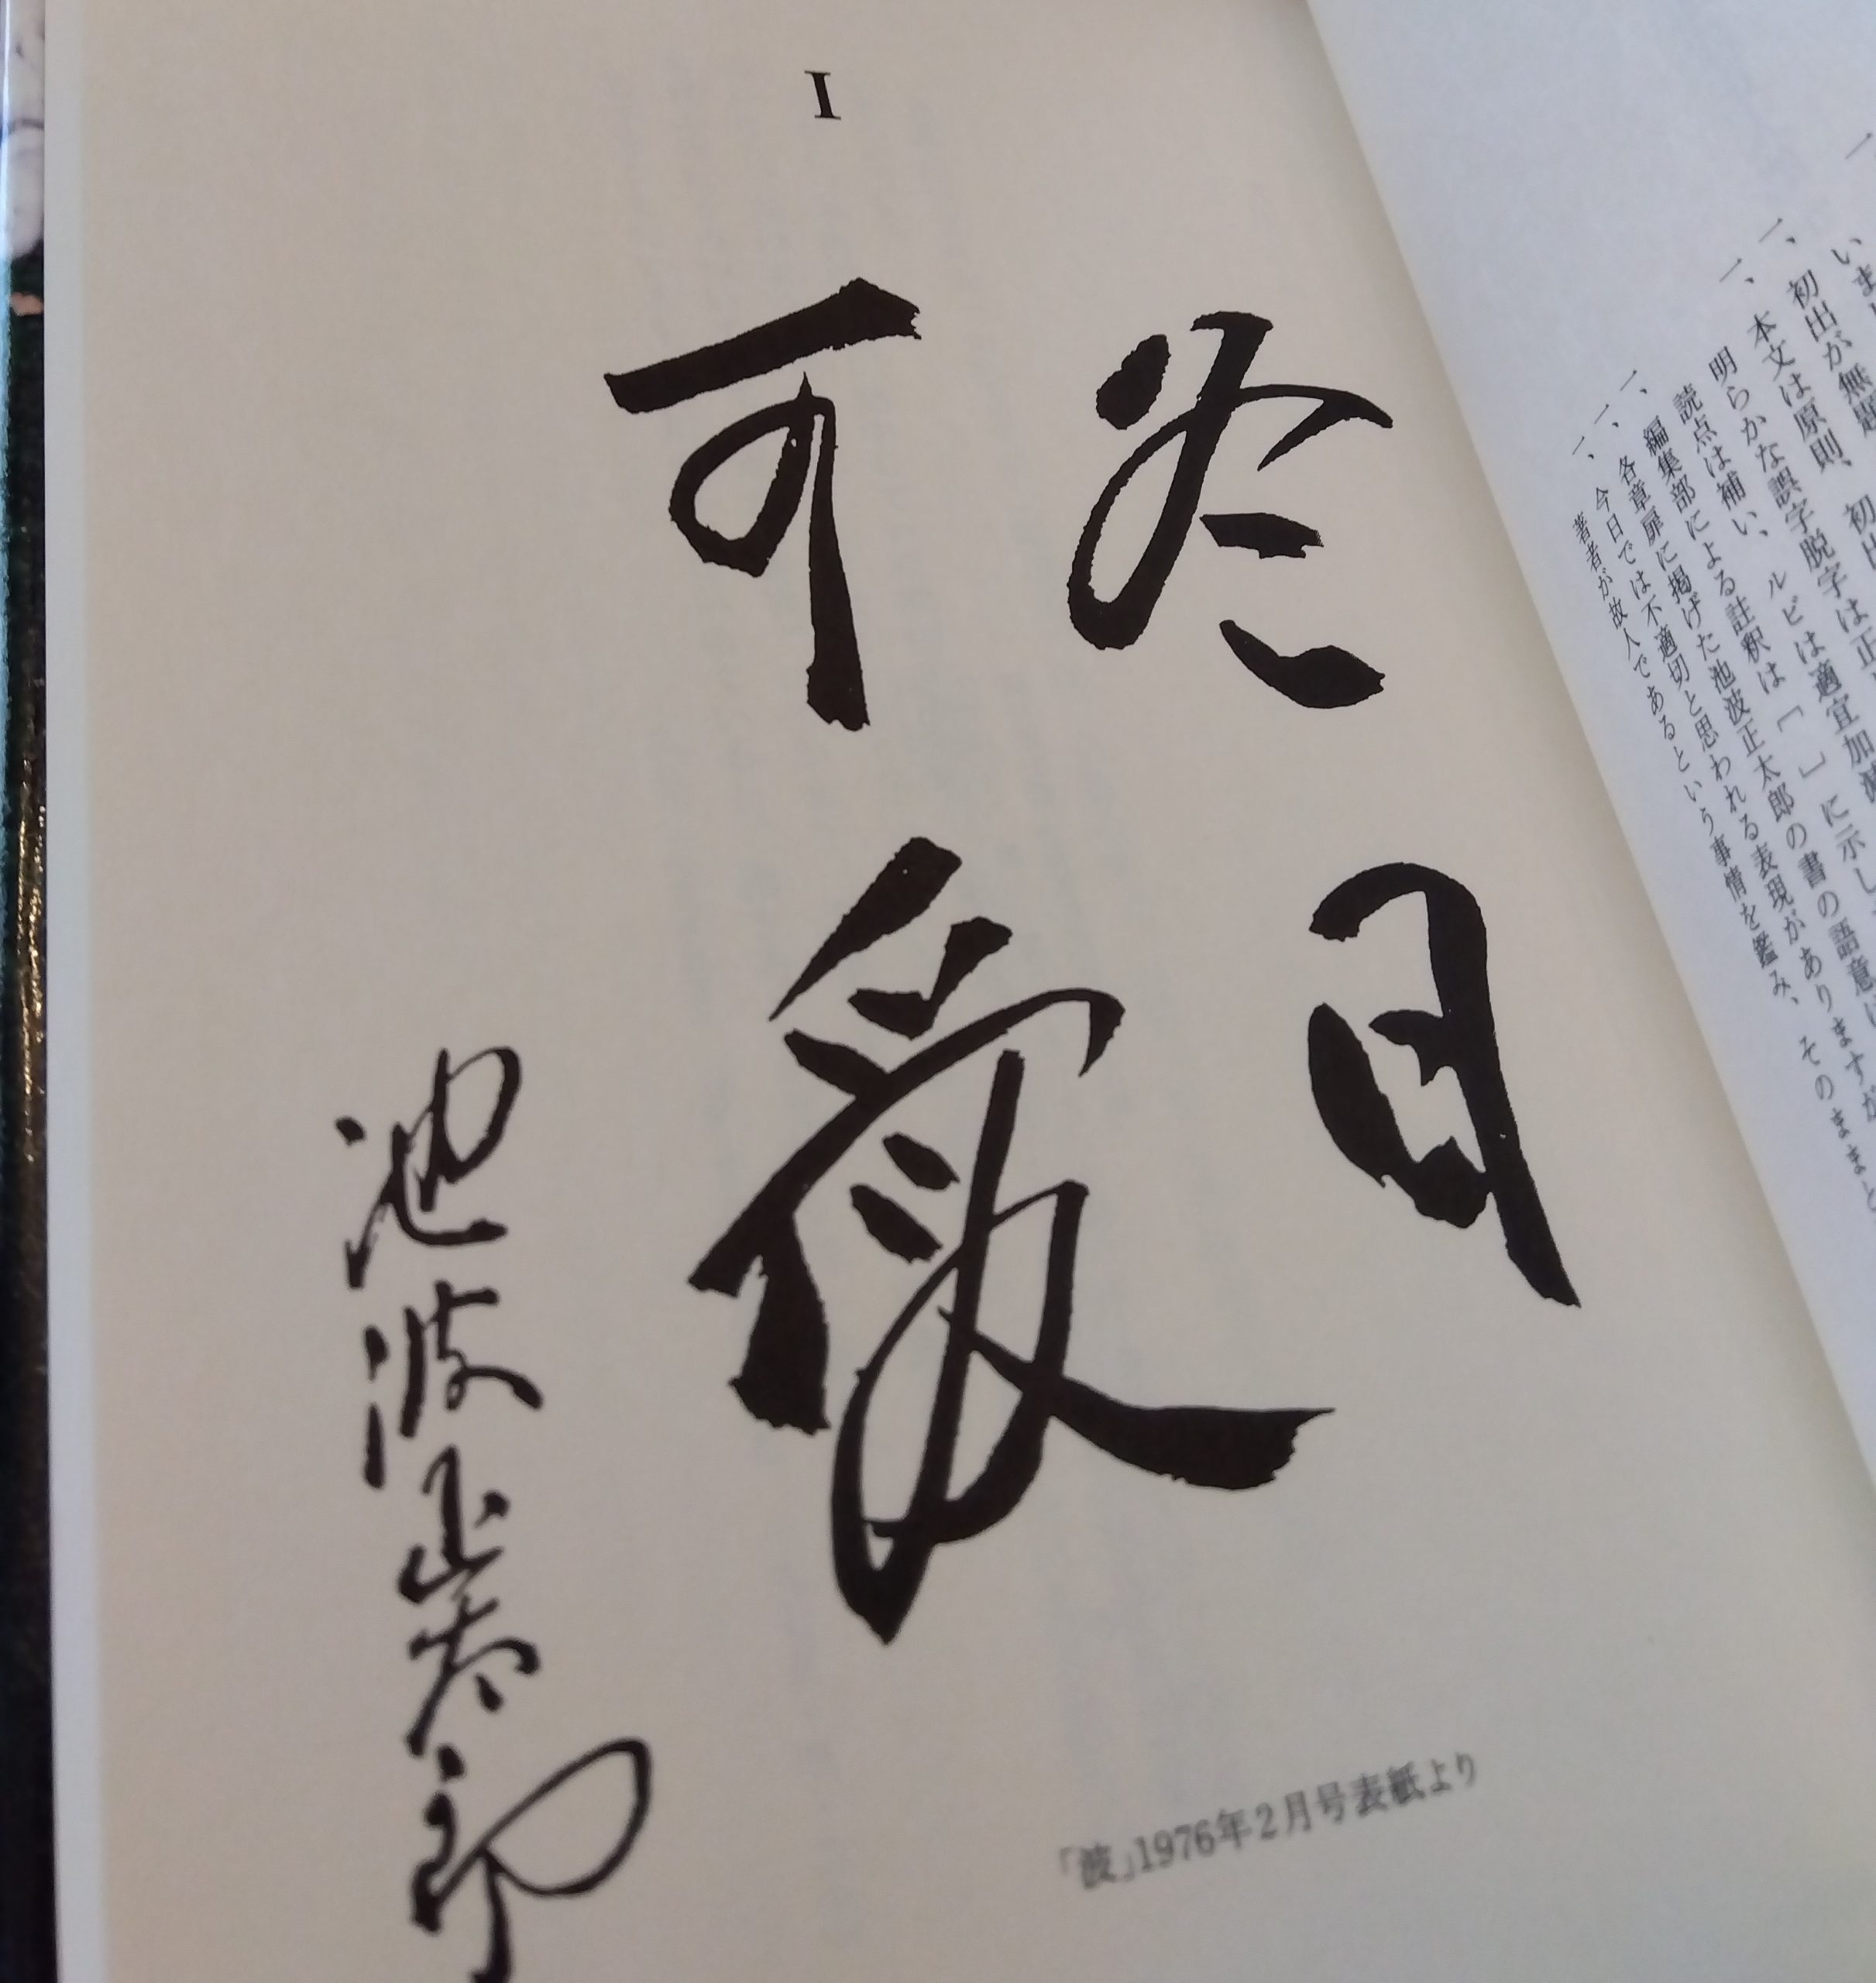 一、
いま
一、初出が無題
一、本文は原則、初出
明らかな誤字脱字は正
読点は補い、ルビは適宜加減
一、編集部による註釈は［ ］に示し
一、各章扉に掲げた池波正太郎の書の語意は
一、今日では不適切と思われる表現がありますが
著者が故人であるという事情を鑑み、そのままと
I
冬日
可愛
池波正太郎
「波」1976年2月号表紙より